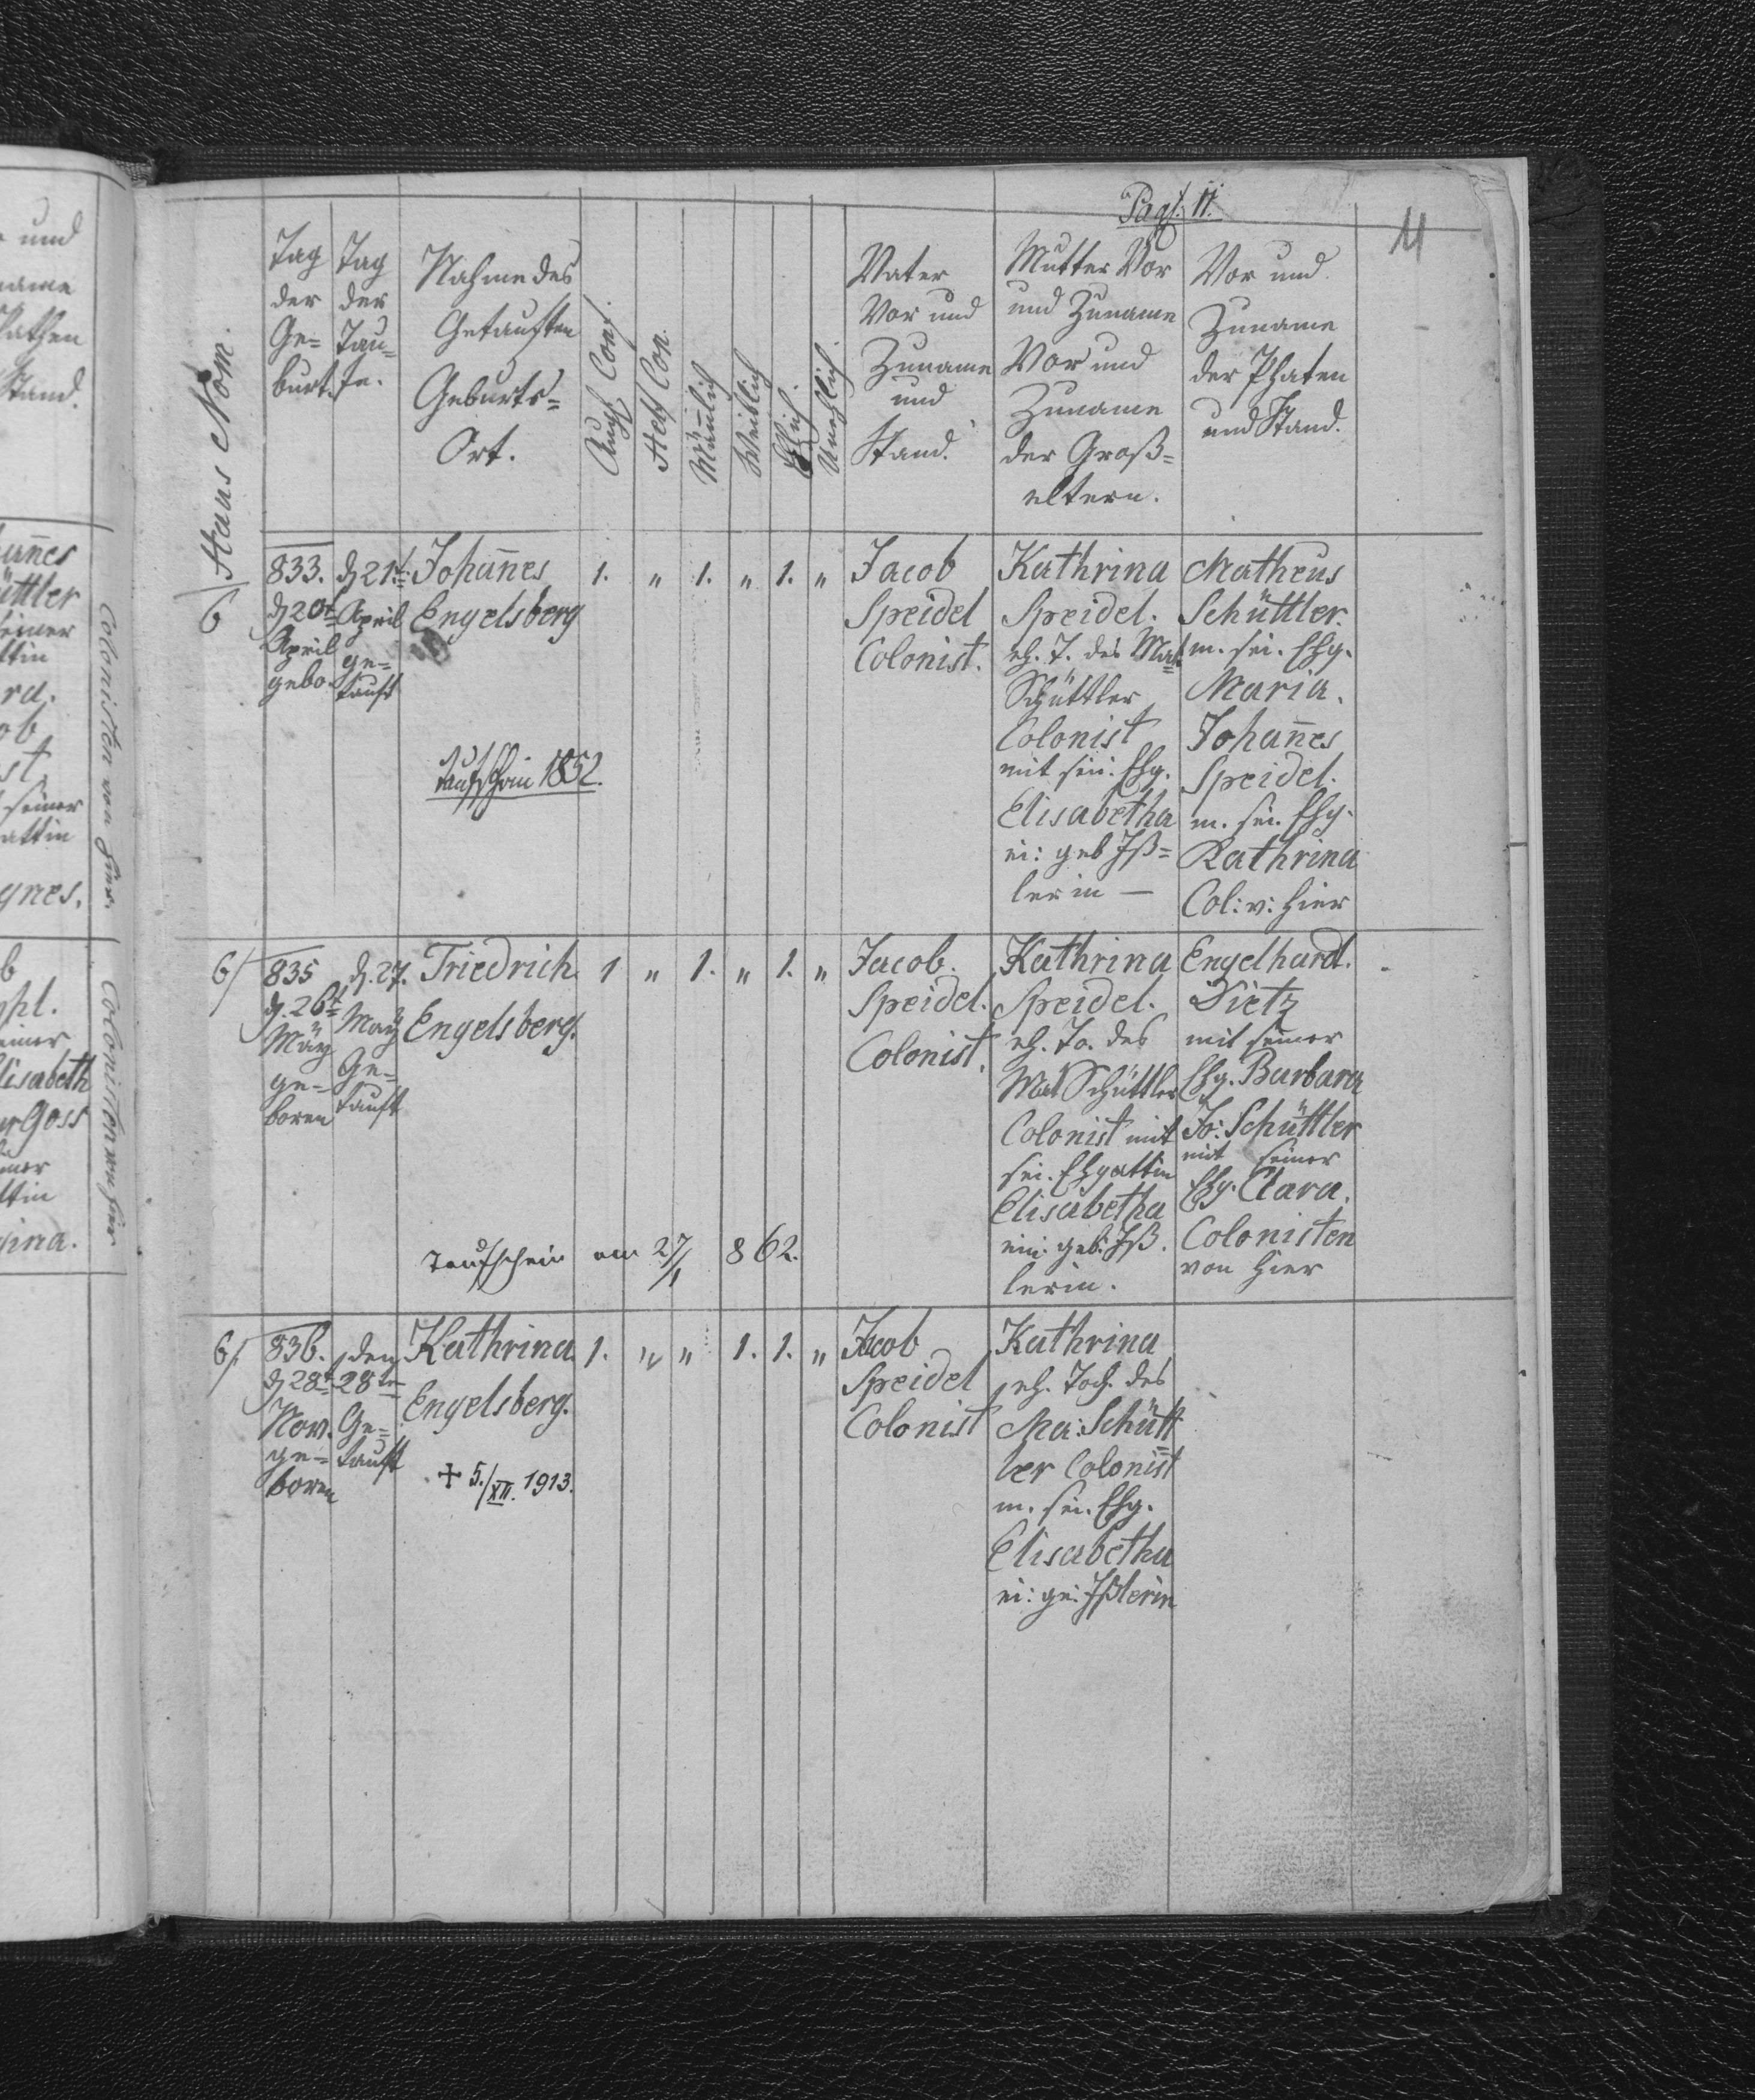 Pag: 11.
11
Haus Nom.
Tag
der
Ge=
burt.
Tag
der
Tau=
fe.
Nahme des
Getauften
Geburts=
Ort.
Augs Conf.
Helv Con.
Mänlich
Weiblich
Ehlich
Unehlich
Vater
Vor und
Zuname
und
Stand.
Mutter Vor
und Zuname
Vor und
Zuname
der Groß=
eltern.
Vor und
Zuname
der Phaten
und Stand.
6
833.
d 20t
April
gebo.
d 21t
April
ge=
tauft
Johannes
Engelsberg
Taufschein 1852.
1. " 1. " 1. "
Jacob
Speidel
Colonist.
Kathrina
Speidel.
eh. T. des Mat
Schüttler
Colonist
mit sei. Ehg.
Elisabetha
ei: geb Iß=
lerin —
Matheus
Schüttler.
m. sei. Ehg.
Maria.
Johannes
Speidel.
m. sei. Ehg.
Kathrina
Col: v: hier
6/
835
d. 26t
May
ge=
boren
d. 27.
May
Ge=
tauft
Friedrich
Engelsberg.
Taufschein am 27/1 862.
1 " 1. " 1. "
Jacob.
Speidel.
Colonist.
Kathrina
Speidel.
eh. To. des
Mat Schüttler
Colonist mit
sei. Ehgattin
Elisabetha
ei: geb: Iß.
lerin.
Engelhardt.
Dietz
mit seiner
Ehg. Barbara
Jo: Schüttler
mit seiner
Ehg. Clara.
Colonisten
von hier
6/.
836.
d 28t
Nov.
ge=
boren
den
28ten
Ge=
tauft
Kathrina
Engelsberg.
+ 5./XII. 1913.
1. " " 1. 1. "
Jacob
Speidel
Colonist
Kathrina
eh. Toch. des
Ma: Schütt=
ler Colonist
m. sei. Ehg.
Elisabetha
ei: ge: Ißlerin
und
Stand.
seiner
Colonisten von hier.
Colonisten von hier